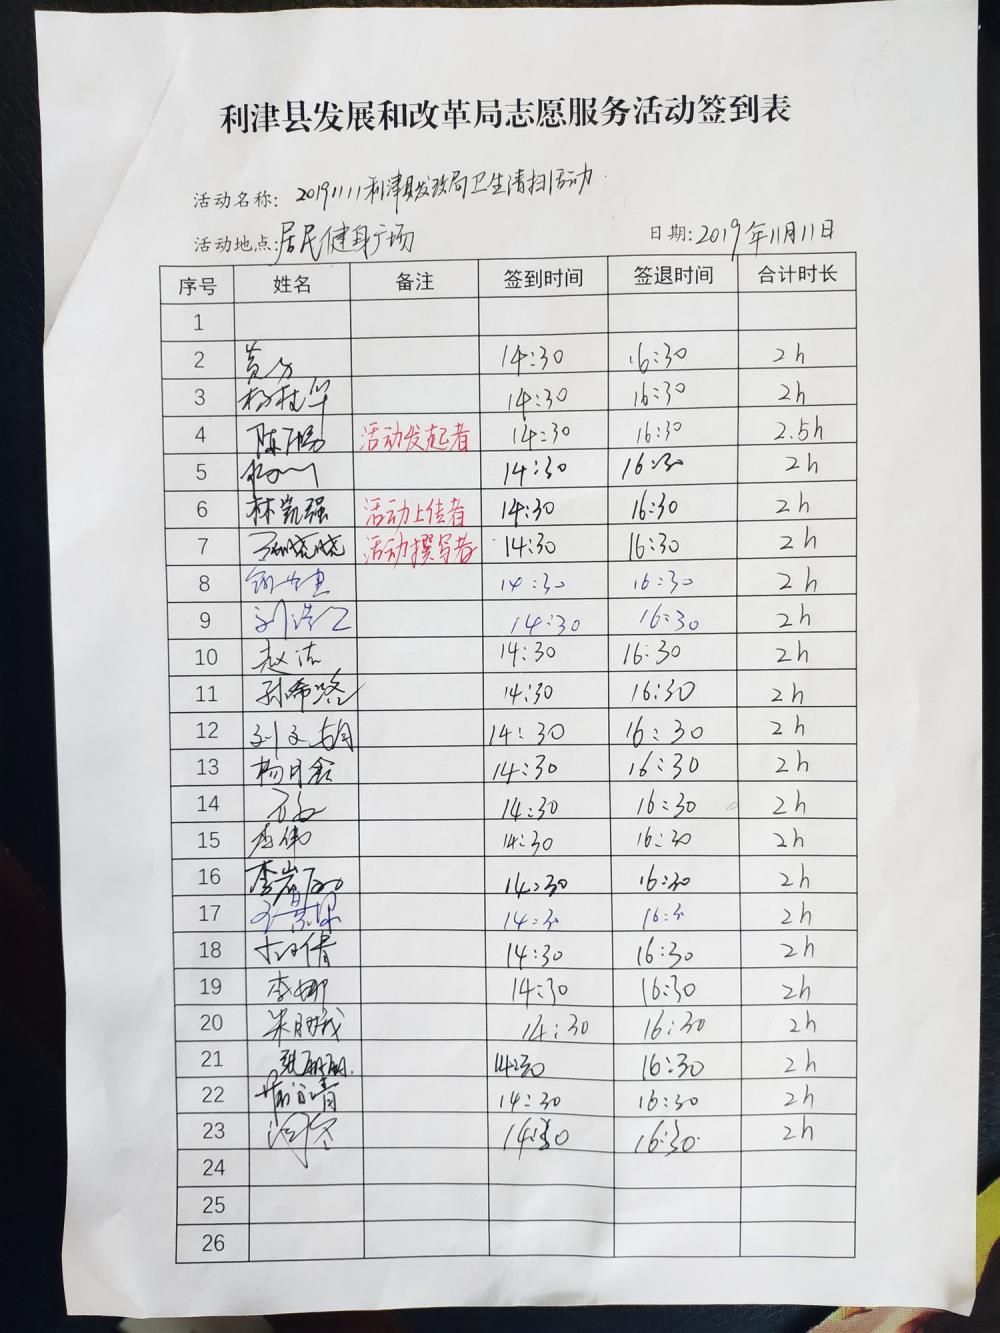 利津县发展和改革局志愿服务活动签到表
活动名称: 20191111利津县发改局卫生清扫活动
活动地点: 居民健身广场 日期: 2019年11月11日
序号 姓名 备注 签到时间 签退时间 合计时长
1
2 14:30 16:30 2h
3 杨桂华 14:30 16:30 2h
4 活动发起者 14:30 16:30 2.5h
5 14:30 16:30 2h
6 林凯强 活动上传者 14:30 16:30 2h
7 晓晓 活动撰写者 14:30 16:30 2h
8 14:30 16:30 2h
9 刘浩 14:30 16:30 2h
10 赵洁 14:30 16:30 2h
11 孙希 14:30 16:30 2h
12 刘文娟 14:30 16:30 2h
13 杨月 14:30 16:30 2h
14 14:30 16:30 2h
15 李伟 14:30 16:30 2h
16 李岩 14:30 16:30 2h
17 14:30 16:30 2h
18 倩 14:30 16:30 2h
19 李娜 14:30 16:30 2h
20 14:30 16:30 2h
21 张丽丽 14:30 16:30 2h
22 清 14:30 16:30 2h
23 14:30 16:30 2h
24
25
26